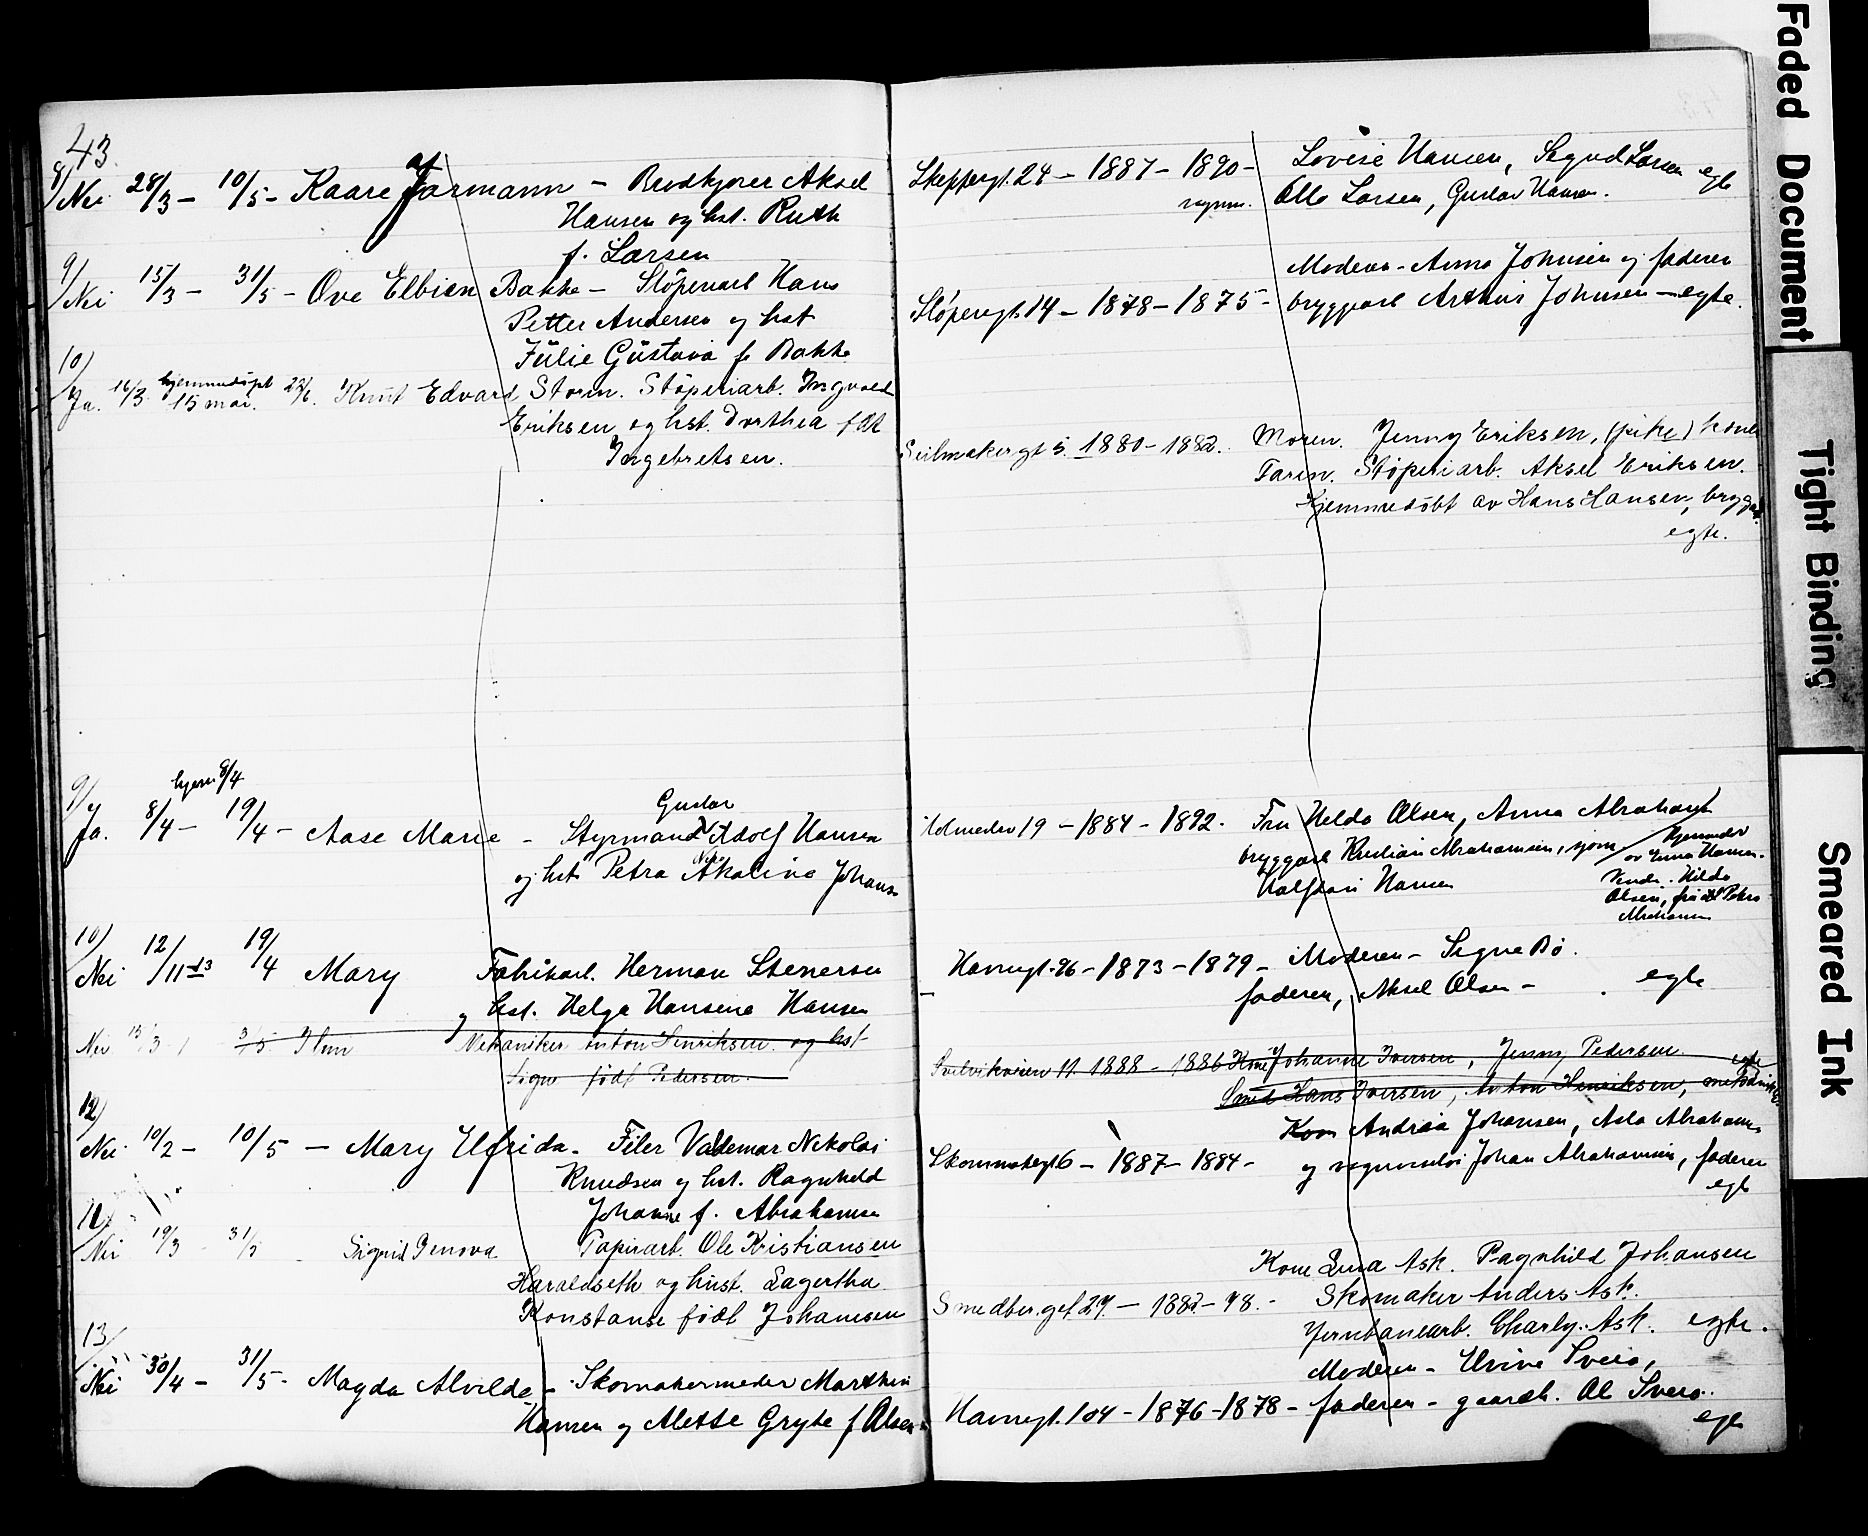 43
8/
Nei 28/3 – 10/5 – Kaare Jarmann – Brødkjører Aksel
Hansen og hst. Ruth
f. Larsen
9/
Nei 15/3 – 31/5 – Ove Elbien Bakke – Støperiarb Hans
Petter Andersen og hst
Julie Gustava f. Bakke
10/
Ja. 16/3 hjemmedøpt 15 mai. Knut Edvard Storm. Støperiarb. Ingvald
Eriksen og hst. Dorthea født
Ingebretsen.
9/
hjem 8/4
Ja. 8/4 – 19/4 – Aase Marie – Styrmand Gustav Adolf Hansen
og hst Petra Johans
10/
Nei 12/11 13 19/4 Mary Fabrikarb. Herman Stenersen
og hst. Helga Hansene Hansen
Nei 15/3 3/5 Mekaniker Anton Henriksen og hst
Signe født Pedersen.
12/
Nei 10/2 – 10/5 – Mary Elfrida – Filer Valdemar Nikolai
Knudsen og hst. Ragnhild
Johanne f. Abrahamsen
11/
Nei 19/3 – 31/5 Sigrid Genova Papirarb. Ole Kristiansen
Haraldseth og hust. Lagertha
Konstanse født Johansen
13/
Nei 30/4 – 31/5 – Magda Alvilde – Skomakermester Marthin
Hansen og Alette Gryte f Olsen
Skeppergt. 24 – 1887 – 1890 – Lovise Hansen, Sigurd Larsen egte
Olla Larsen, Gustav Hansen.
Moderen – Anna Johnsen og faderen
Støperigt. 14 – 1878 – 1875 – bryggarb Arthur Johnsen – egte.
Seilmakergt 5. 1880 – 1882. Moren. Jenny Eriksen, (pike) kone
Faren. Støperiarb. Aksel Eriksen.
Hjemmedøbt av Hans Hansen, bryggarb.
egte.
19 – 1884 – 1892. Fru Hilda Olsen, Anna Abrahams
bryggarb Kristian Abrahamsen, sjøm
Halfdan Hansen
hjemmedøbt
av Hansen.
Hilda
Olsen, fru Petra
Abrahamsen
Havnegt. 96 – 1873 – 1879 – Moderen – Signe Bø.
faderen, Aksel Olsen – egte
11. 1888 – 1886 Kone Johanne Iversen, Jenny Pedersen egte
Smed Hans Iversen, Anton Henriksen, metodister
Kone Andrea Johansen, Asla Abrahams
Skommakergt 6 – 1887 – 1884 – og Johan Abrahamsen, faderen
egte
Kone Lina Ask. Ragnhild Johansen
Smedberggt. 27 – 1882 – 78. – Skomaker Anders Ask.
Jernbanearb. Charly. Ask. egte.
Moderen – Sveis,
Havnegt. 104 – 1876 – 1878 – faderen – gaardb. Ol Sveis.
egte
Faded Document
Tight Binding
Smeared Ink